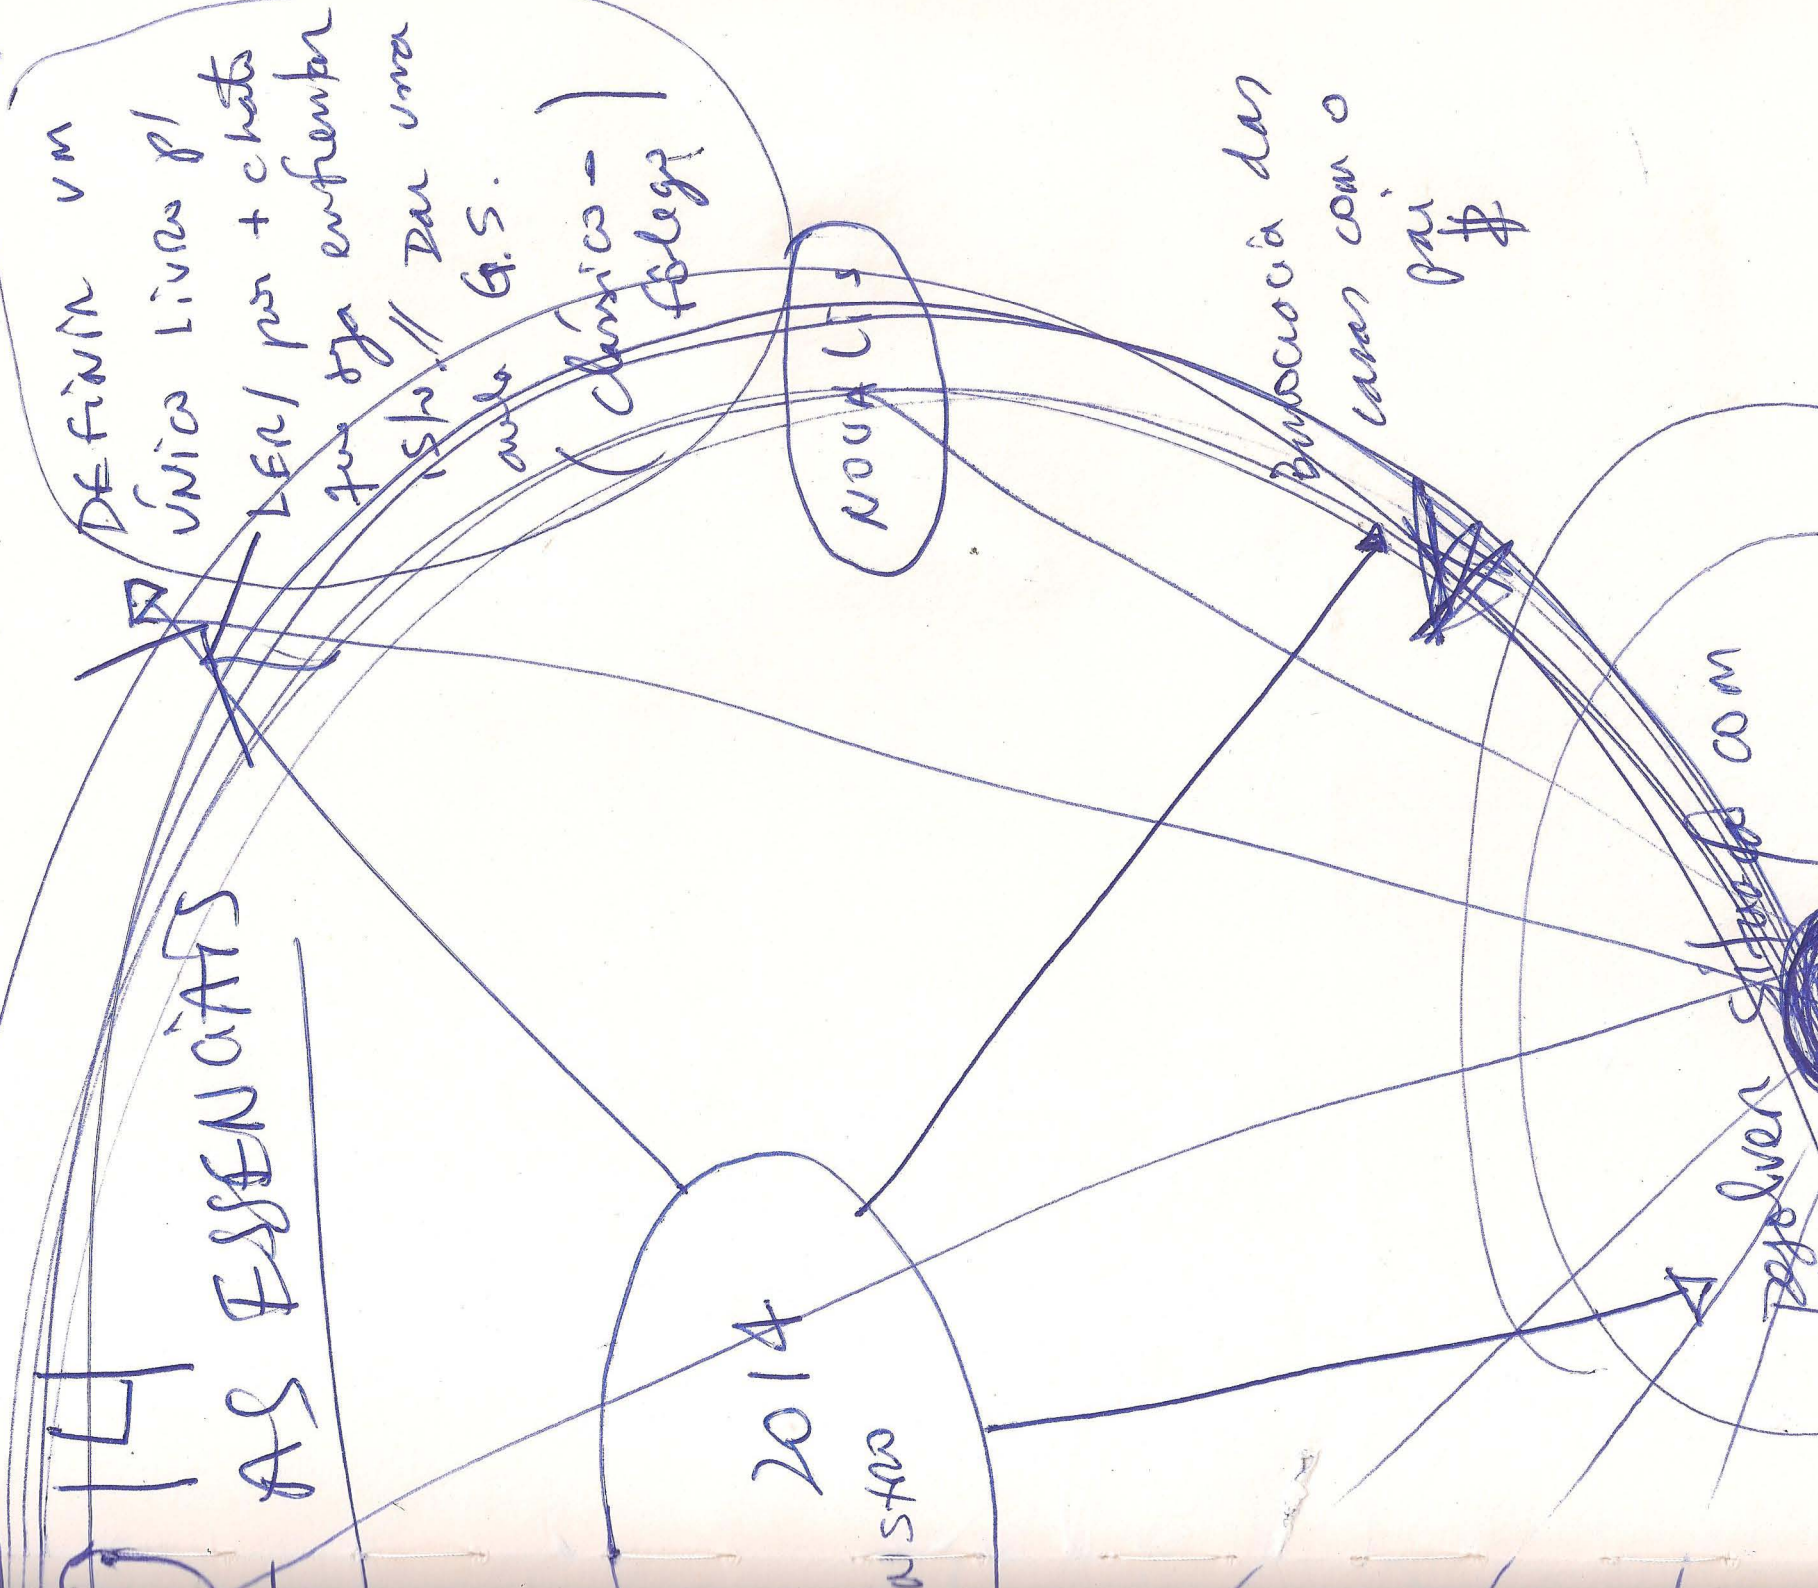 DEFINIR UM
ÚNICO LIVRO p/
LER/ por + chato
que seja enfrentar
isso! // DAR uma
aula G.S.
(clássico -
fôlego)
NOVALIS
Burocracia das
casas com o
pai
$
AS ESSENCIAIS
2014
Situação com